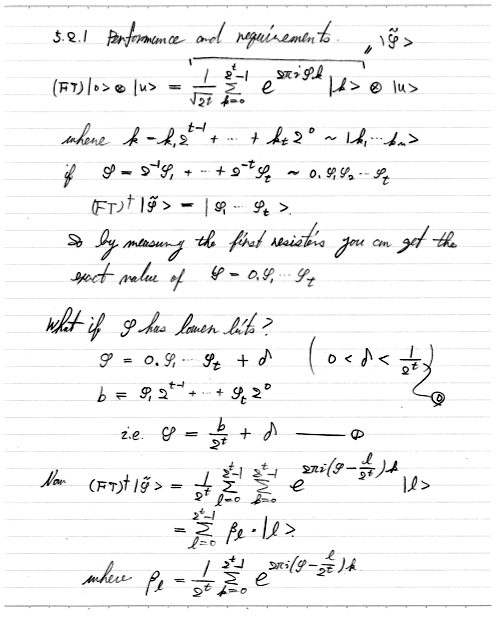 5.2.1 Performance and requirements.
" |φ̃>
(FT)|0>⊗|u> = 1/√2^t Σ_{k=0}^{2^t-1} e^{2πiφk} |k> ⊗ |u>
where k = k₁2^{t-1} + ... + k_t 2^0 ~ |k₁...k_n>
if φ = 2^{-1}φ₁ + ... + 2^{-t}φ_t ~ 0.φ₁φ₂...φ_t
(FT)†|φ̃> = |φ₁...φ_t>.
So by measuring the first resisters you can get the
exact value of φ = 0.φ₁...φ_t
What if φ has lower bits?
φ = 0.φ₁...φ_t + δ (0 < δ < 1/2^t) ⓪
b = φ₁2^{t-1} + ... + φ_t 2^0
i.e. φ = b/2^t + δ — ①
Now (FT)†|φ̃> = 1/2^t Σ_{l=0}^{2^t-1} Σ_{k=0}^{2^t-1} e^{2πi(φ - l/2^t)k} |l>
= Σ_{l=0}^{2^t-1} β_l · |l>.
where β_l = 1/2^t Σ_{k=0}^{2^t-1} e^{2πi(φ - l/2^t)k}